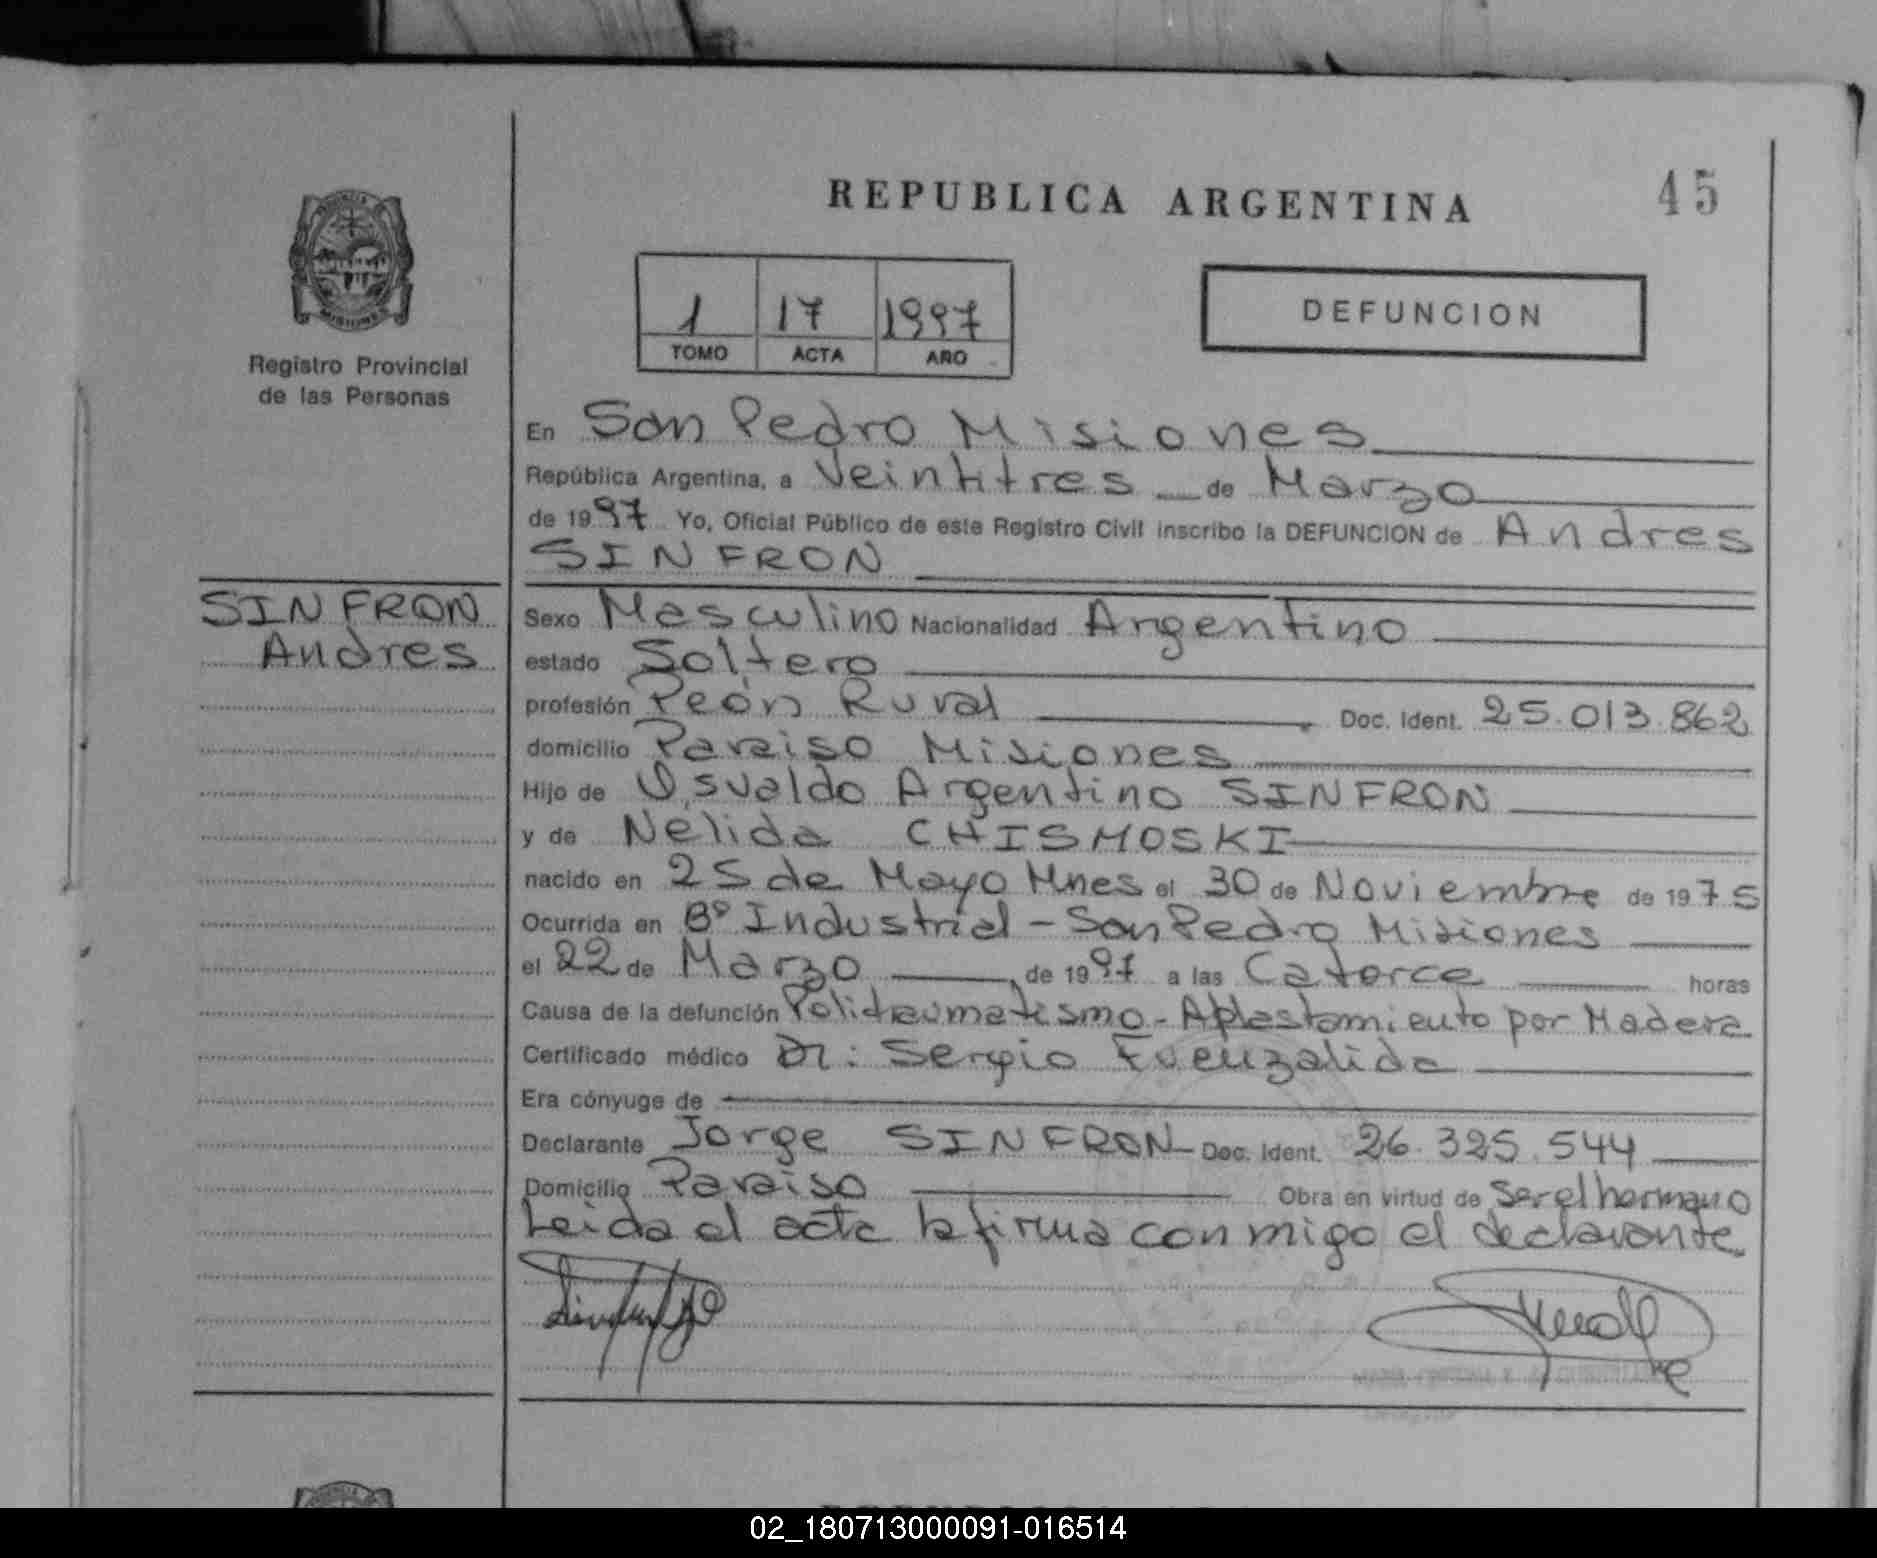 REPUBLICA ARGENTINA
45
PROVINCIA
MISIONES
Registro Provincial
de las Personas
1 17 1997
TOMO ACTA AÑO
DEFUNCION
En San Pedro Misiones
República Argentina, a Veintitres de Marzo
de 1997 Yo, Oficial Público de este Registro Civil inscribo la DEFUNCION de Andres
SINFRON
SINFRON
Andres
Sexo Masculino Nacionalidad Argentino
estado Soltero
profesión Peón Rural Doc. Ident. 25.013.862
domicilio Paraiso Misiones
Hijo de Osvaldo Argentino SINFRON
y de Nelida CHISMOSKI
nacido en 25 de Mayo Mnes el 30 de Noviembre de 1975
Ocurrida en Bº Industrial - San Pedro Misiones
el 22 de Marzo de 1997 a las Catorce horas
Causa de la defunción Politraumatismo - Aplastamiento por Madera
Certificado médico Dr: Sergio Fuenzalida
Era cónyuge de
Declarante Jorge SINFRON Doc. Ident. 26.325.544
Domicilio Paraiso Obra en virtud de Ser el hermano
Leida el acta la firma conmigo el declarante
02_180713000091-016514